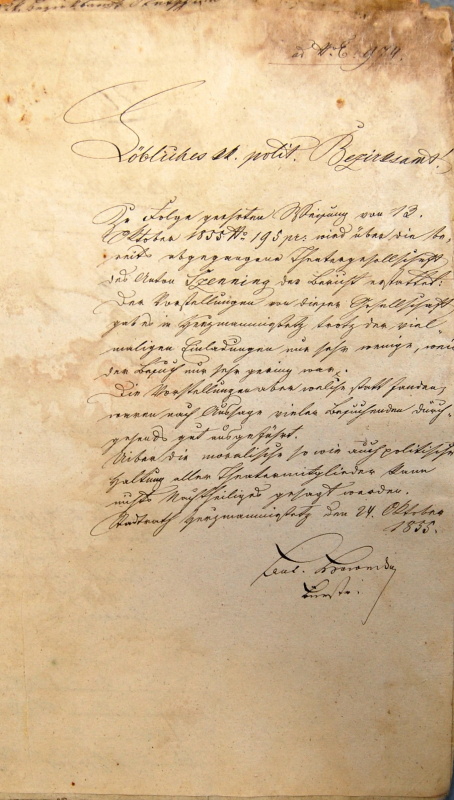 ad N.E. 974.
Löbliches kk. polit. Bezirksamt!
In Folge geehrten Weisung von 13.
Oktober 1855 No 195 pr: wird über die be-
reits abgegangene Theatergesellschaft
des Anton Szenning der Bericht erstattet:
Der Vorstellungen von dieser Gesellschaft
gab es in Herzmanmiestetz trotz der viel-
maligen Einladungen nur sehr wenige, weil
der Besuch nur sehr gering war.
Die Vorstellungen aber welche statt fanden,
waren nach Aussage vieler Besuchenden durch-
gehends gut ausgeführt.
Uiber die moralische so wie auch politische
Haltung aller Theatermitglieder kann
nichts Nachtheiliges gesagt werden.
Stadtrath Herzmanmiestetz den 24. Oktober
1855.